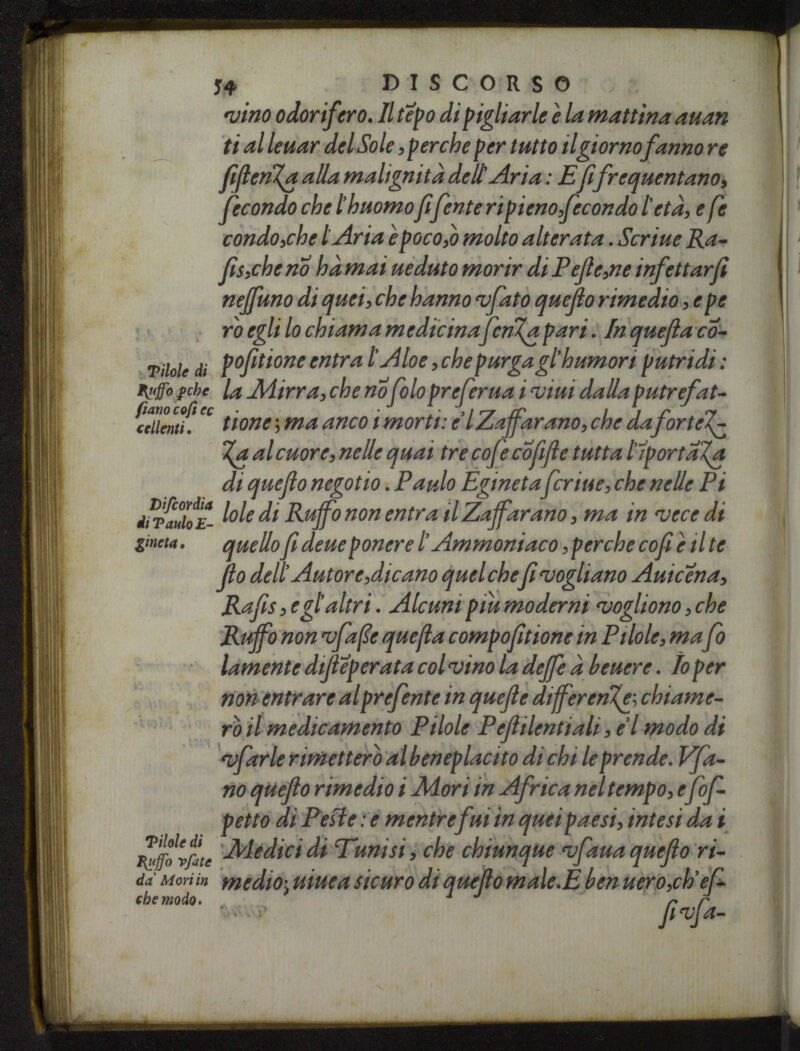 54 DISCORSO
vino odorifero. Il tẽpo di pigliarle è la mattina auan
ti al leuar del Sole, perche per tutto il giorno fanno re
ſiſtenza alla malignità dell'Aria: E ſi frequentano,
ſecondo che l'huomo ſi ſente ripieno, ſecondo l'età, e ſe
condo, che l'Aria è poco, ò molto alterata. Scriue Ra-
ſis, che nõ hà mai ueduto morir di Peſte, ne infettarſi
neſſuno di quei, che hanno vſato queſto rimedio, e pe
rò egli lo chiama medicina ſenza pari. In queſta cõ-
poſitione entra l'Aloe, che purga gl'humori putridi:
la Mirra, che nõ ſolo preſerua i viui dalla putrefat-
tione; ma anco i morti: e'l Zaffarano, che da fortez-
za al cuore, nelle quai tre coſe cõſiſte tutta l'ĩportãza
di queſto negotio. Paulo Egineta ſcriue, che nelle Pi
lole di Ruffo non entra il Zaffarano, ma in vece di
quello ſi deue ponere l'Ammoniaco, perche coſi è il te
ſto dell'Autore, dicano quel che ſi vogliano Auicẽna,
Raſis, e gl'altri. Alcuni più moderni vogliono, che
Ruffo non vſaße queſta compoſitione in Pilole, ma ſo
lamente diſtẽperata col vino la deſſe à beuere. Io per
non entrare al preſente in queſte differenze; chiame-
rò il medicamento Pilole Peſtilentiali, e'l modo di
vſarle rimetterò al beneplacito di chi le prende. Vſa-
no queſto rimedio i Mori in Africa nel tempo, e ſoſ-
petto di Peſte: e mentre fui in quei paesi, intesi da i
Medici di Tunisi, che chiunque vſaua queſto ri-
medio; uiuea sicuro di queſto male. E ben uero, ch'eſ-
ſi vſa-
Pilole di
Ruffo ꝑche
ſiano coſi ec
cellenti.
Diſcordia
di Paulo E-
gineta.
Pilole di
Ruffo vſate
da' Mori in
che modo.